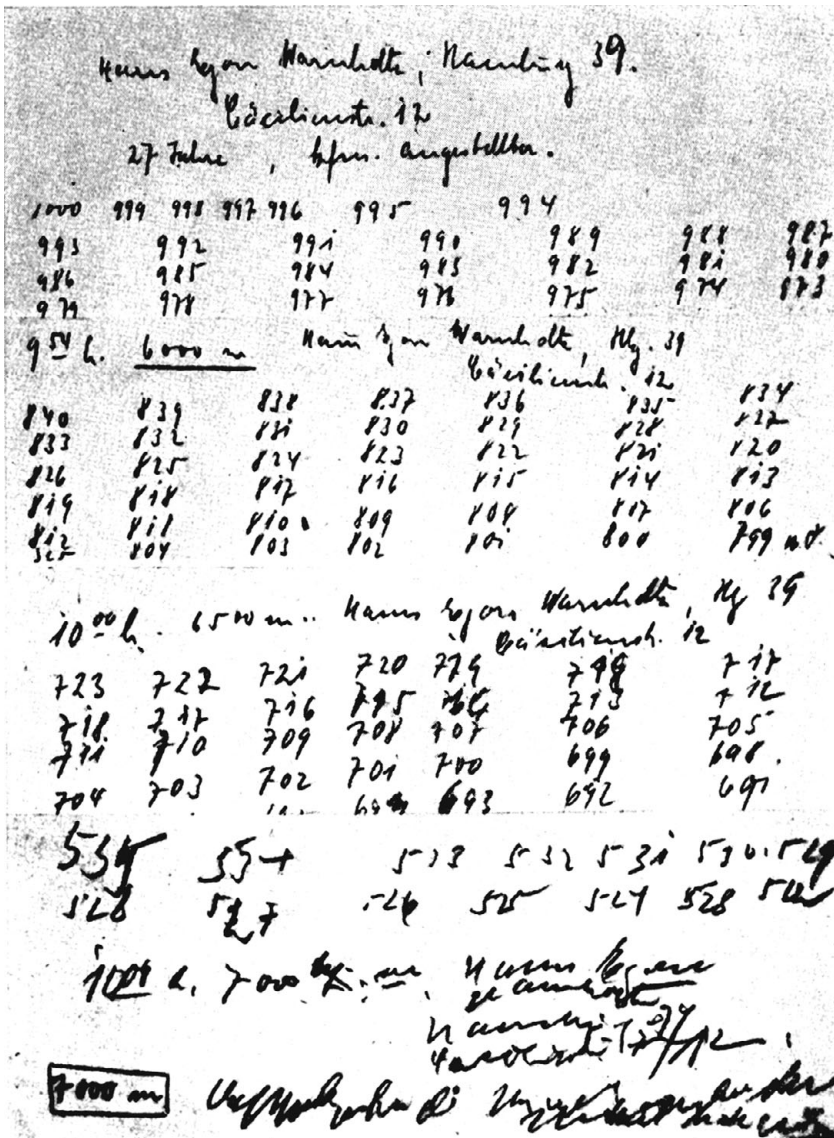 Hans Egon Warnholtz, Hamburg 39.
Cäcilienstr. 12
27 Jahre, kfm. Angestellter.
1000 999 998 997 996 995 994
993 992 991 990 989 988 987
986 985 984 983 982 981 980
979 978 977 976 975 974 973
9 54 h. 6000 m Hans Egon Warnholtz, Hbg. 39
Cäcilienstr. 12
840 839 838 837 836 835 834
833 832 831 830 829 828 827
826 825 824 823 822 821 820
819 818 817 816 815 814 813
812 811 810 809 808 807 806
804 803 802 801 800 799
10 00 h. 6500 m. Hans Egon Warnholtz, Hbg 39
Cäcilienstr. 12
723 722 721 720 719 718 717
718 717 716 715 713 712
711 710 709 708 707 706 705
704 703 702 701 700 699 698
693 692 691
535 533 532 531 530 529
528 527 526 525 524 528
10 04 h. 7000 m. Hans Egon
12
7000 m